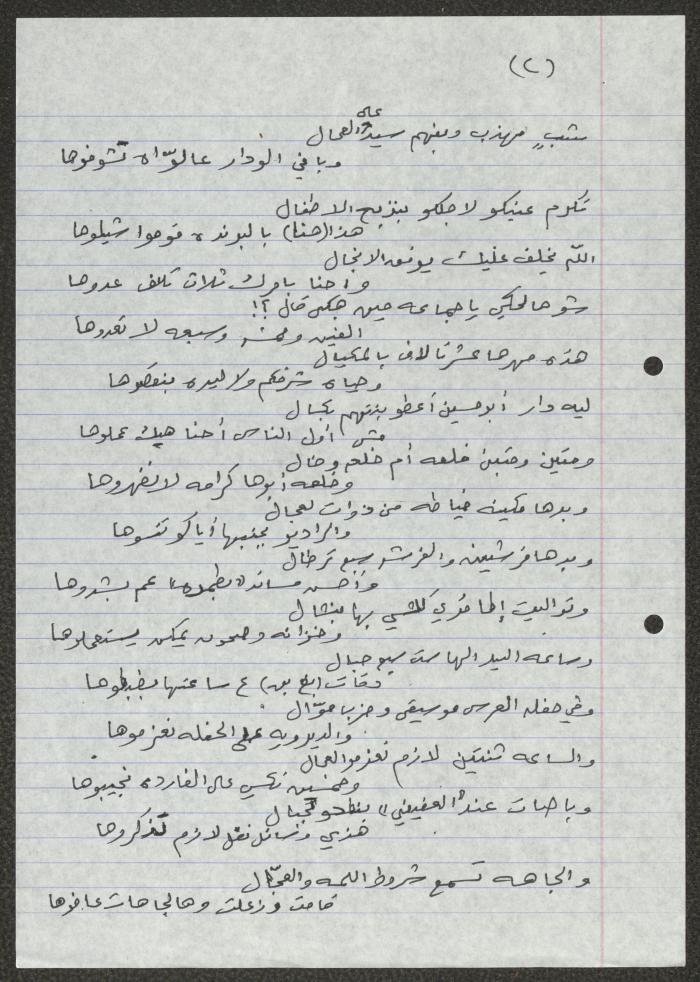 (٢)
شب مهذب وبفهم سيد العمال
على
وباقي الودار عالوّاه تشوفوها
تكرم عينيكو لاجلكو بنذبح الاطفال
هذا (حنا) بالبوندة قوموا شيلوها
الله يخلف عليك يوفق الانجال
واحنا بامرك ثلاث تلاف عدوها
شو هالحكي يا جماعه مين هيك قال ؟!
الفين وخمسه وسبعه لا تعدوها
هذه مهرها عشر تالاف بالمكيال
وحياة شرفكم ولا ليره بنقصوها
ليه دار أبو حسين أعطو بنتهم بكمال
مش أول الناس أحنا هيك عملوها
وميتين وميتين خلعه أم خلعه وخال
وخلعه أبوها كرامه لا تقهروها
وبدها مكينة خياطه من ذوات لعجال
والراديو بجنبها أياكو تنسوها
وبدها فرشتين والفرشه سبع ترطال
وأحسن مساند عم بشدوها
وتواليت بها منشال
وخزانه وصحون يمكن يستعملوها
وساعة اليد الها ست سبع حبال
دقات (بغ بن) ع ساعتها بظبطوها
وفي حفله العرس موسيقى وضرب موّال
والديرويه على الحفله نعزموها
والساعه ثنتين لازم نعزم العمال
وخمسين تكسي عالفارده نجيبوها
وباصات عند "العفيفي" بنظحو لجبال
هذي وسائل نقل لازم تذكروها
والجاهه تسمع شروط اللمه والعجّال
قامت وزعلت وهالجاهات عافوها